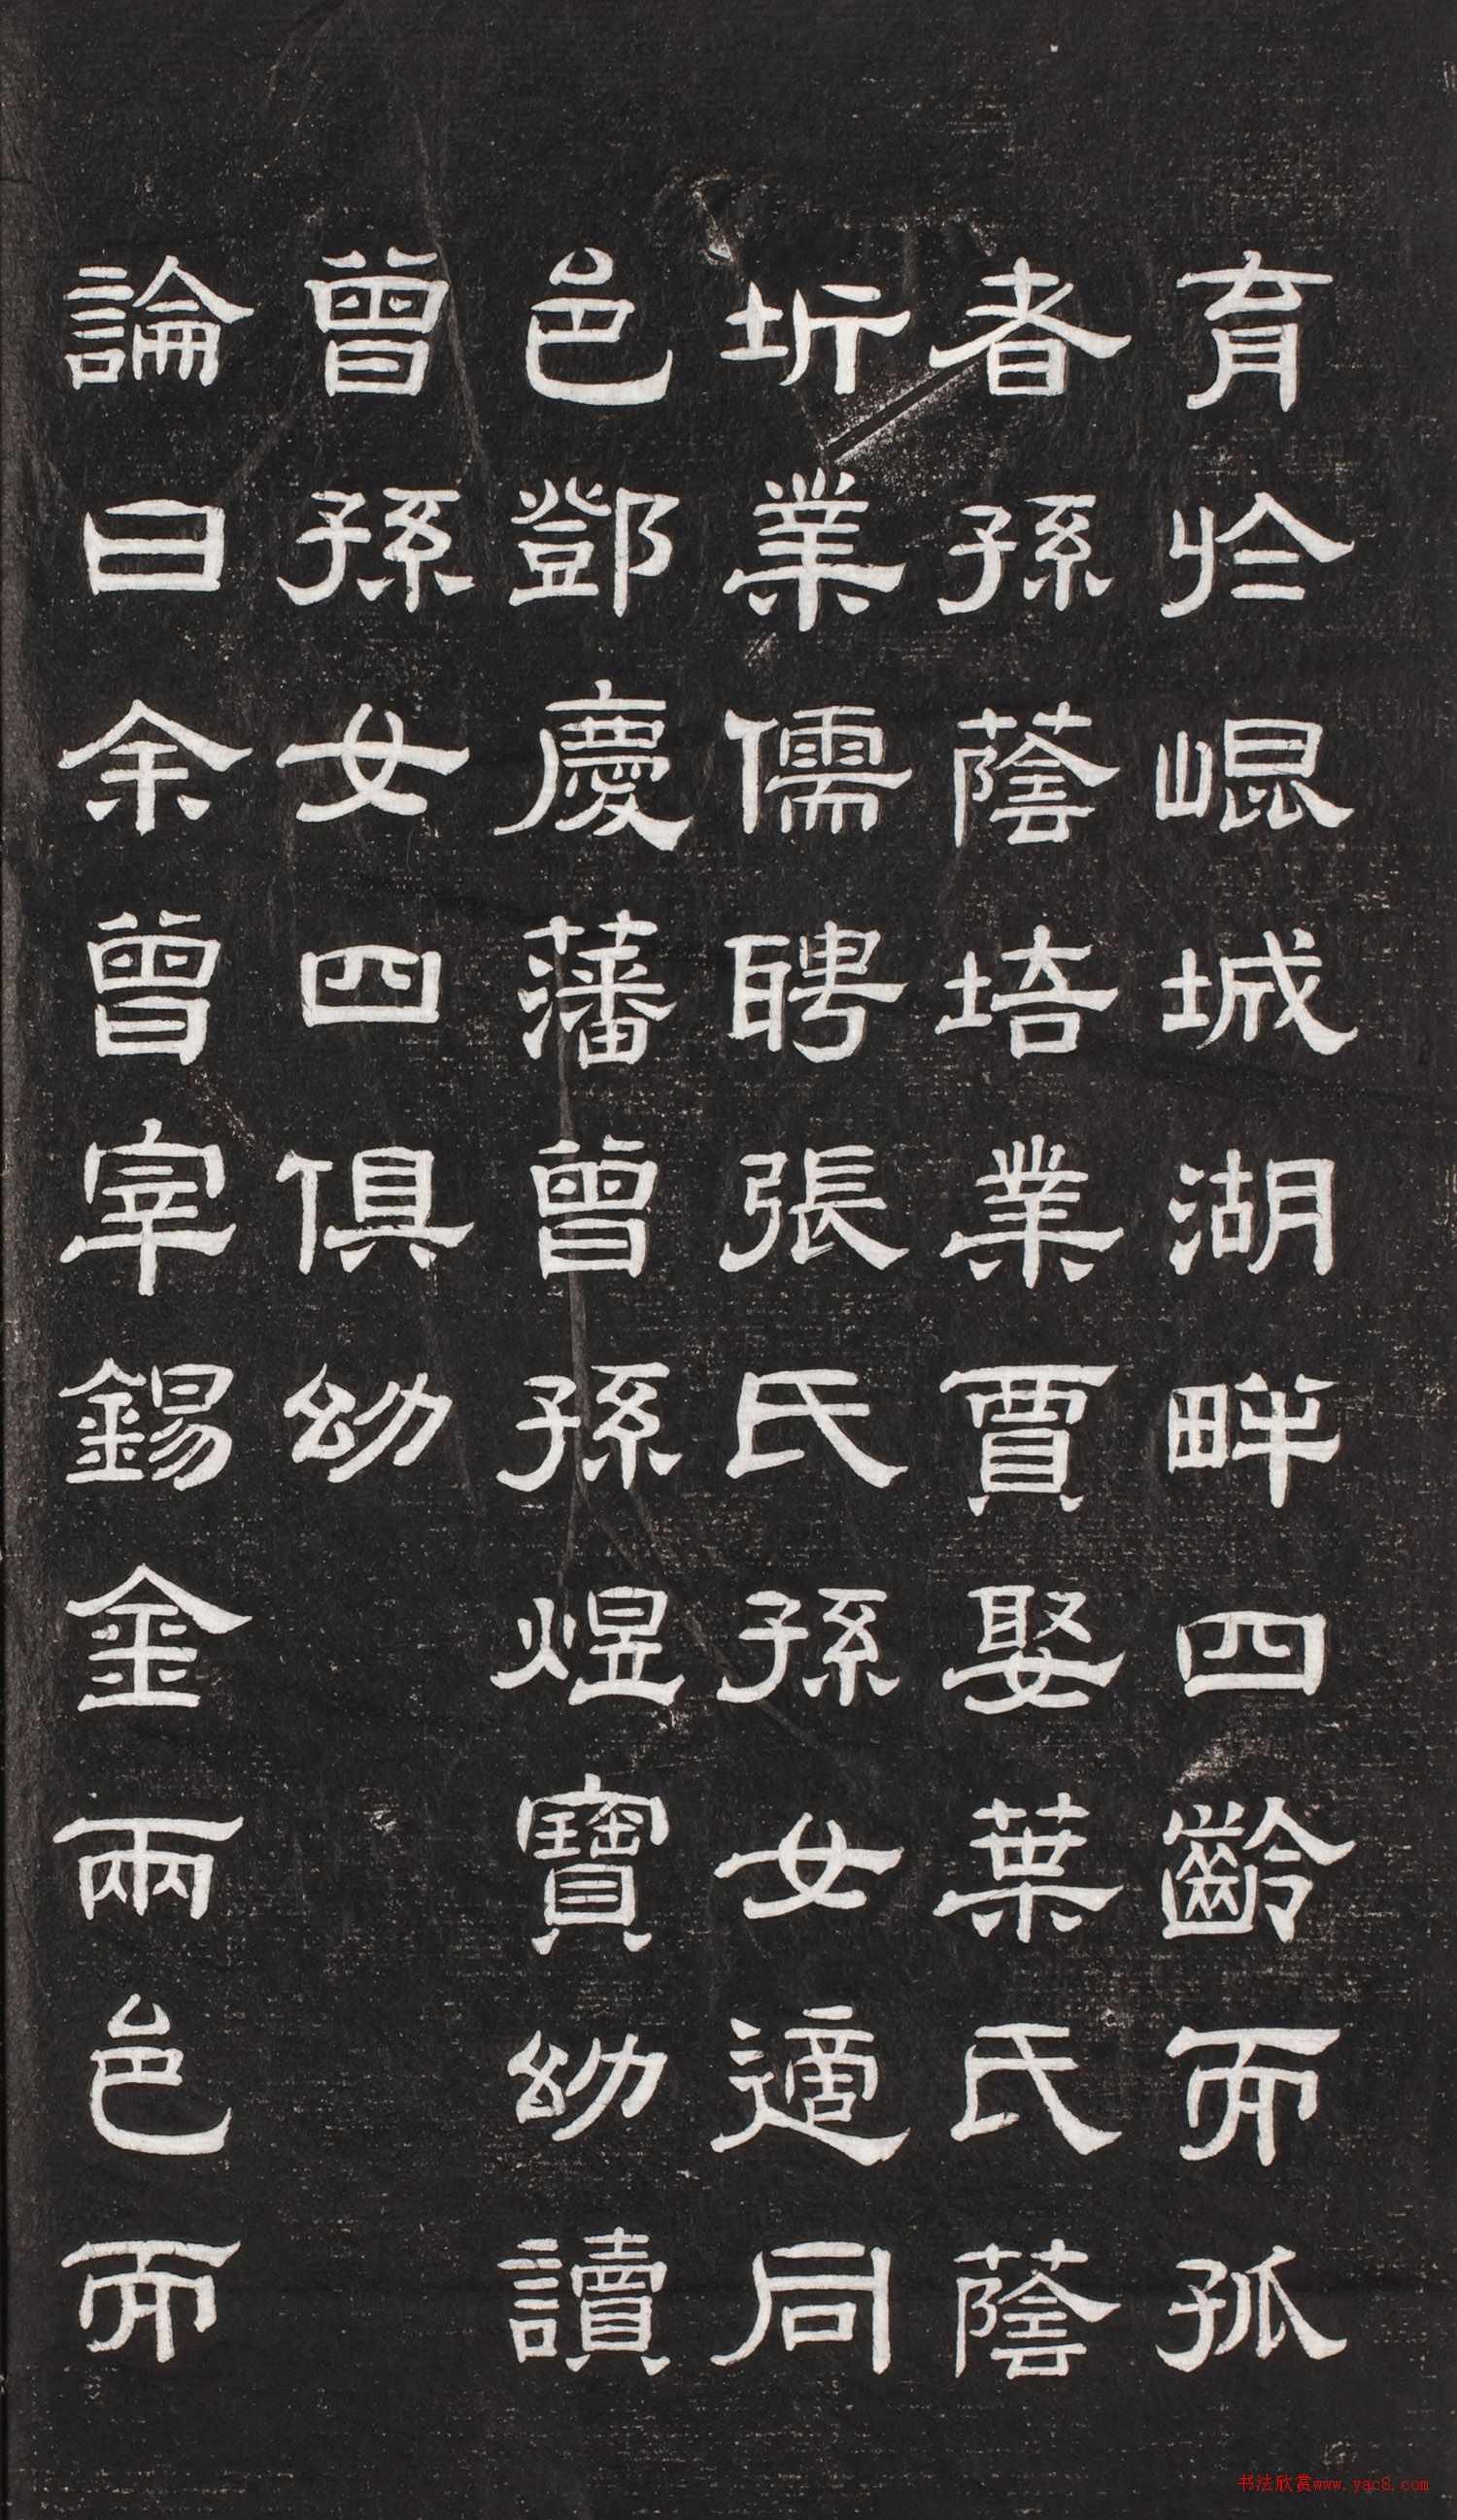 育於崐城湖畔四齡而孤
者孫蔭培業賈娶葉氏蔭
圻業儒聘張氏孫女適同
邑鄧慶藩曾孫煜寶幼讀
曾孫女四俱幼
論曰余曾宰錫金兩邑而
书法欣赏www.yac8.com